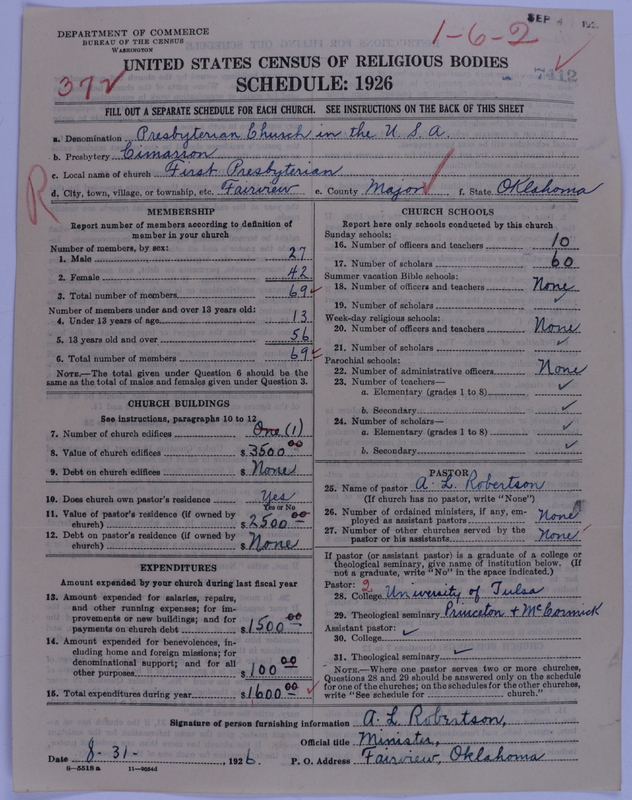 DEPARTMENT OF COMMERCE
BUREAU OF THE CENSUS
WASHINGTON
SEP 4
1-6-2
7412
37
UNITED STATES CENSUS OF RELIGIOUS BODIES
SCHEDULE: 1926
FILL OUT A SEPARATE SCHEDULE FOR EACH CHURCH. SEE INSTRUCTIONS ON THE BACK OF THIS SHEET
a. Denomination Presbyterian Church in the U.S.A.
b. Presbytery Cimarron
c. Local name of church First Presbyterian
d. City, town, village, or township, etc. Fairview e. County Major f. State Oklahoma
R
MEMBERSHIP
Report number of members according to definition of
member in your church
Number of members, by sex:
1. Male 27
2. Female 42
3. Total number of members 69
Number of members under and over 13 years old:
4. Under 13 years of age 13
5. 13 years old and over 56
6. Total number of members 69
NOTE.—The total given under Question 6 should be
same as the total of males and females given under Question 3.
CHURCH BUILDINGS
See instructions, paragraphs 10 to 12
7. Number of church edifices One (1)
8. Value of church edifices $ 3500.00
9. Debt on church edifices $ None
10. Does church own pastor's residence Yes
Yes or No
11. Value of pastor's residence (if owned by
church) $ 2500.00
12. Debt on pastor's residence (if owned by
church) $ None
EXPENDITURES
Amount expended by your church during last fiscal year
13. Amount expended for salaries, repairs,
and other running expenses; for im-
provements or new buildings; and for
payments on church debt $ 1500.00
14. Amount expended for benevolences, in-
cluding home and foreign missions; for
denominational support; and for all
other purposes $ 100.00
15. Total expenditures during year $ 1600.00
CHURCH SCHOOLS
Report here only schools conducted by this church
Sunday schools:
16. Number of officers and teachers 10
17. Number of scholars 60
Summer vacation Bible schools:
18. Number of officers and teachers None
19. Number of scholars ✓
Week-day religious schools:
20. Number of officers and teachers None
21. Number of scholars ✓
Parochial schools:
22. Number of administrative officers None
23. Number of teachers—
a. Elementary (grades 1 to 8) ✓
b. Secondary ✓
24. Number of scholars—
a. Elementary (grades 1 to 8) ✓
b. Secondary ✓
PASTOR
25. Name of pastor A. L. Robertson
(If church has no pastor, write "None")
26. Number of ordained ministers, if any, em-
ployed as assistant pastors None
27. Number of other churches served by the
pastor or his assistants None
If pastor (or assistant pastor) is a graduate of a college or
theological seminary, give name of institution below. (If
not a graduate, write "No" in the space indicated.)
Pastor: 2
28. College University of Tulsa
29. Theological seminary Princeton + McCormick
Assistant pastor:
30. College ✓
31. Theological seminary ✓
NOTE.—Where one pastor serves two or more churches,
Questions 28 and 29 should be answered only on the schedule
for one of the churches; on the schedules for the other churches,
write "See schedule for church."
Signature of person furnishing information A. L. Robertson,
Official title Minister,
Date 8-31-, 1926. P. O. Address Fairview, Oklahoma
8—5518a 11—9054d